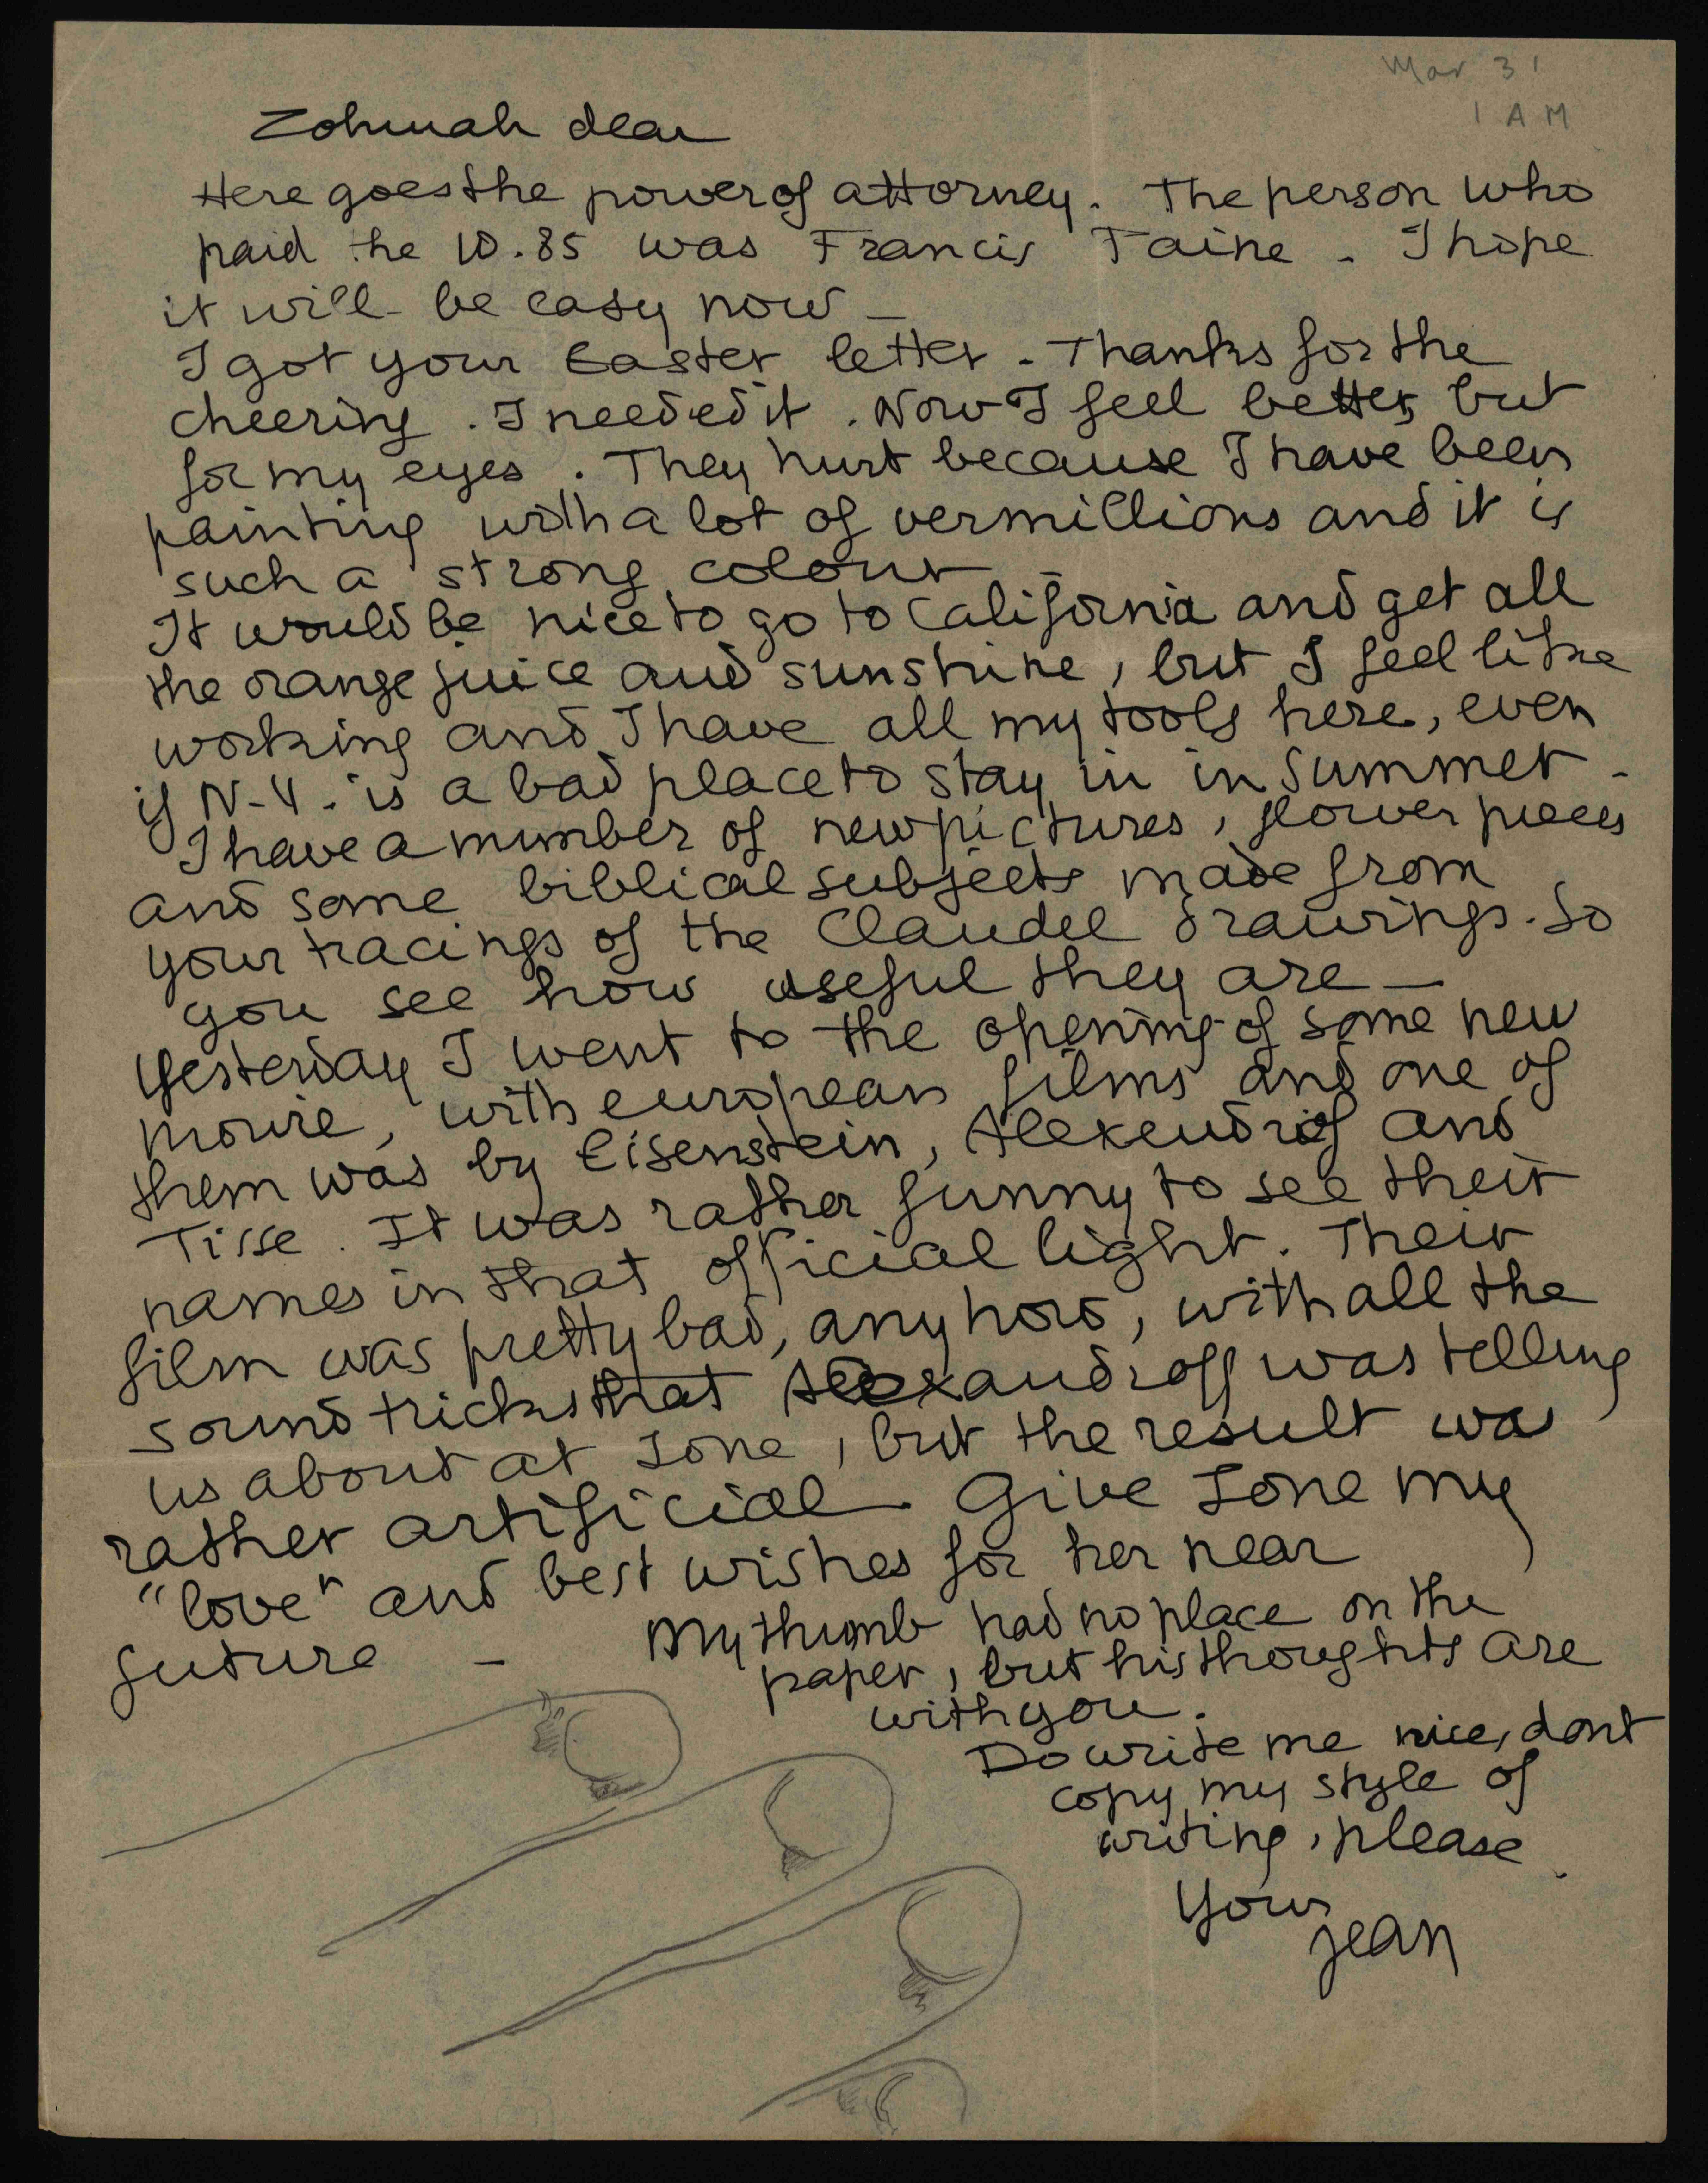 Mar 31
1 AM
Zohmah dear
Here goes the power of attorney. The person who
paid the 10.85 was Francis Taine. I hope
it will be easy now _
I got your Easter letter. Thanks for the
cheering. I needed it. Now I feel better, but
for my eyes. They hurt because I have been
painting with a lot of vermillions and it is
such a strong colour _
It would be nice to go to California and get all
the orange juice and sunshine, but I feel like
working and I have all my tools here, even
if N-Y. is a bad place to stay in in summer.
I have a number of new pictures, flower pieces
and some biblical subjects made from
your tracings of the Claudel drawings. So
you see how useful they are _
Yesterday I went to the opening of some new
movie, with european films and one of
them was by Eisenstein, Alexendrof and
Tisse. It was rather funny to see their
names in that official light. Their
film was pretty bad, anyhow, with all the
sound tricks that Alexandroff was telling
us about at Ione, but the result was
rather artificial. Give Ione my
"love" and best wishes for her near
future _
My thumb had no place on the
paper, but his thoughts are
with you.
Do write me nice, dont
copy my style of
writing, please.
Yours
jean